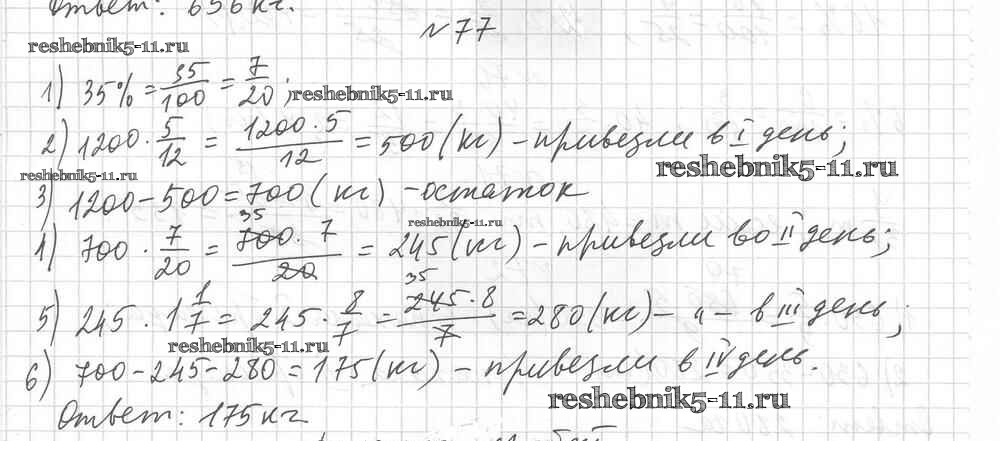 Ответ: 656 кг.
№77
reshebnik5-11.ru
1) 35% = 35/100 = 7/20 ;
reshebnik5-11.ru
2) 1200 · 5/12 = 1200 · 5/12 = 500 (кг) - привезли в I день;
reshebnik5-11.ru
reshebnik5-11.ru
3) 1200 - 500 = 700 (кг) - остаток
reshebnik5-11.ru
4) 700 · 7/20 = 35 700 · 7/20 = 245 (кг) - привезли во II день;
5) 245 · 1 1/7 = 245 · 8/7 = 35 245 · 8/7 = 280 (кг) - " - в III день;
reshebnik5-11.ru
6) 700 - 245 - 280 = 175 (кг) - привезли в IV день.
reshebnik5-11.ru
Ответ: 175 кг